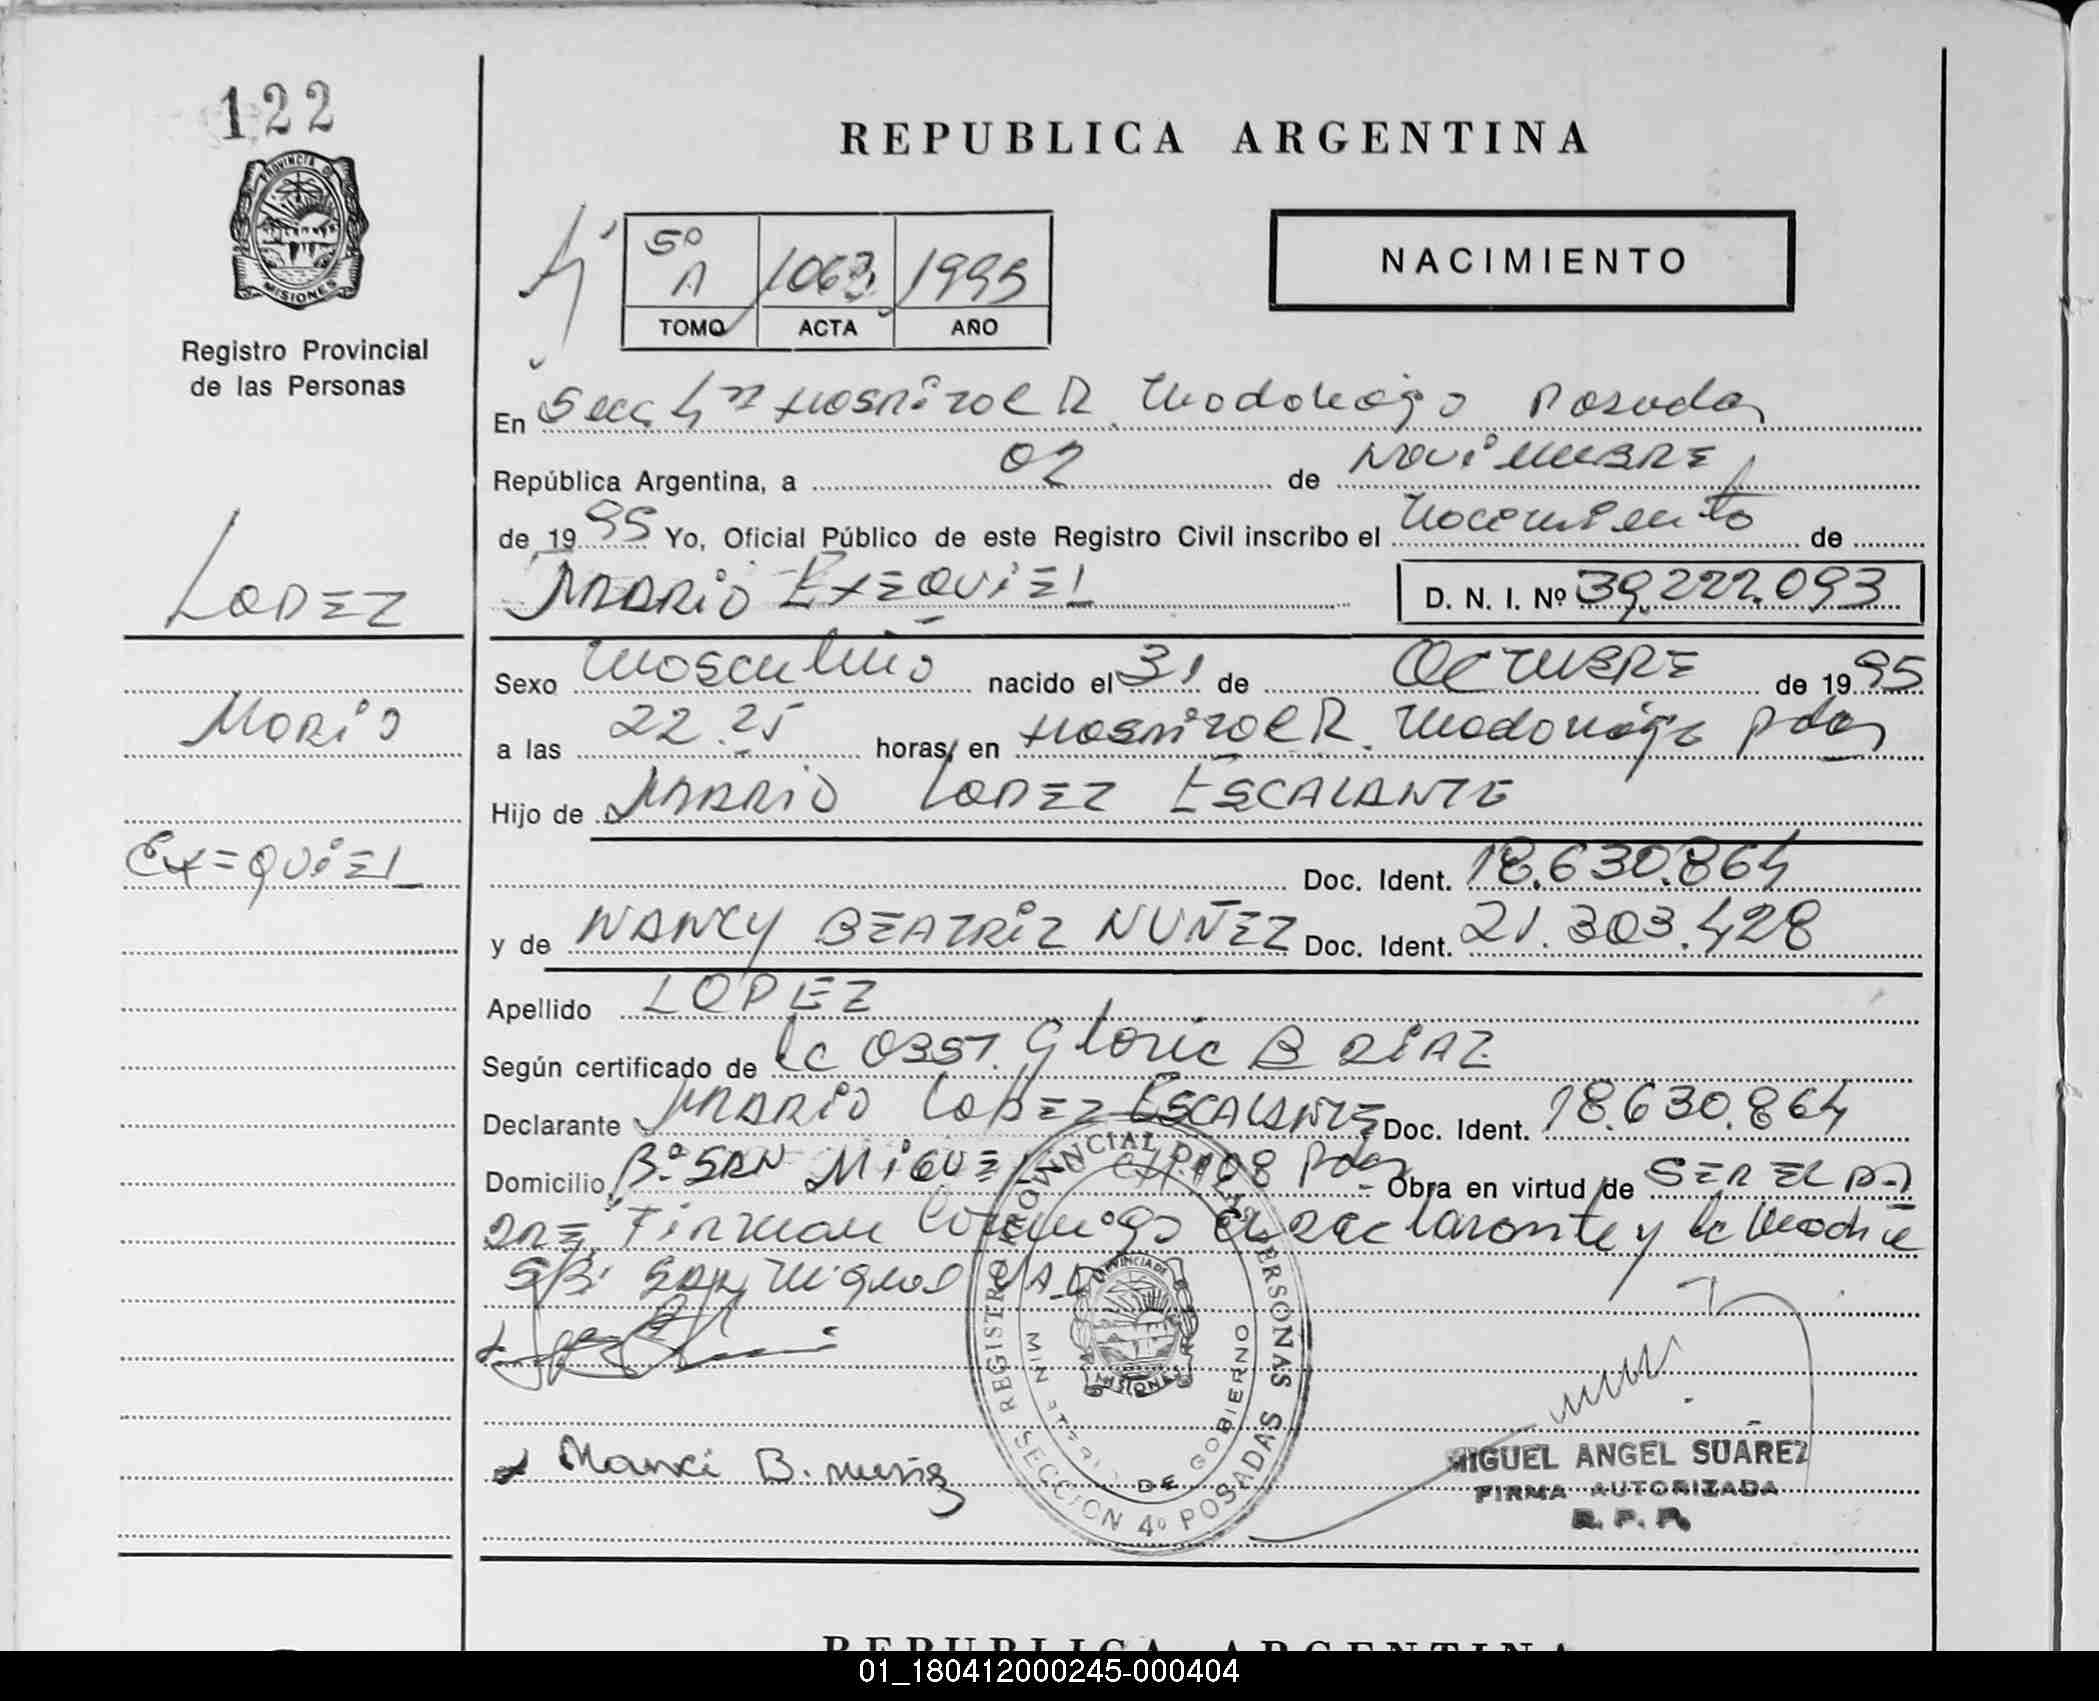 122
PROVINCIA DE
MISIONES
Registro Provincial
de las Personas
LOPEZ
MARIO
EXEQUIEL
REPUBLICA ARGENTINA
4ª
5º A 1063 1995
TOMO ACTA AÑO
NACIMIENTO
En Secc 4ta Hospital R. Madariaga Posadas
República Argentina, a 02 de NOVIEMBRE
de 1995 Yo, Oficial Público de este Registro Civil inscribo el Nacimiento de
MARIO EXEQUIEL D. N. I. Nº 39.222.093
Sexo Masculino nacido el 31 de OCTUBRE de 1995
a las 22.25 horas, en Hospital R. Madariaga Pdas
Hijo de MARIO LOPEZ ESCALANTE
Doc. Ident. 18.630.864
y de NANCY BEATRIZ NUÑEZ Doc. Ident. 21.303.428
Apellido LOPEZ
Según certificado de la OBST. Gloria B DIAZ
Declarante MARIO LOPEZ ESCALANTE Doc. Ident. 18.630.864
Domicilio Bº SAN MIGUEL CH.108 Pdas Obra en virtud de SER EL PA
DRE, Firman Conmigo el declarante y la Madre
S/B: SAN Miguel VAL
Nanci B. nuñez
REGISTRO PROVINCIAL DE LAS PERSONAS
SECCION 4º POSADAS
MINISTERIO DE GOBIERNO
PROVINCIA DE
MISIONES
MIGUEL ANGEL SUAREZ
FIRMA AUTORIZADA
R. P. P.
REPUBLICA ARGENTINA
01_180412000245-000404